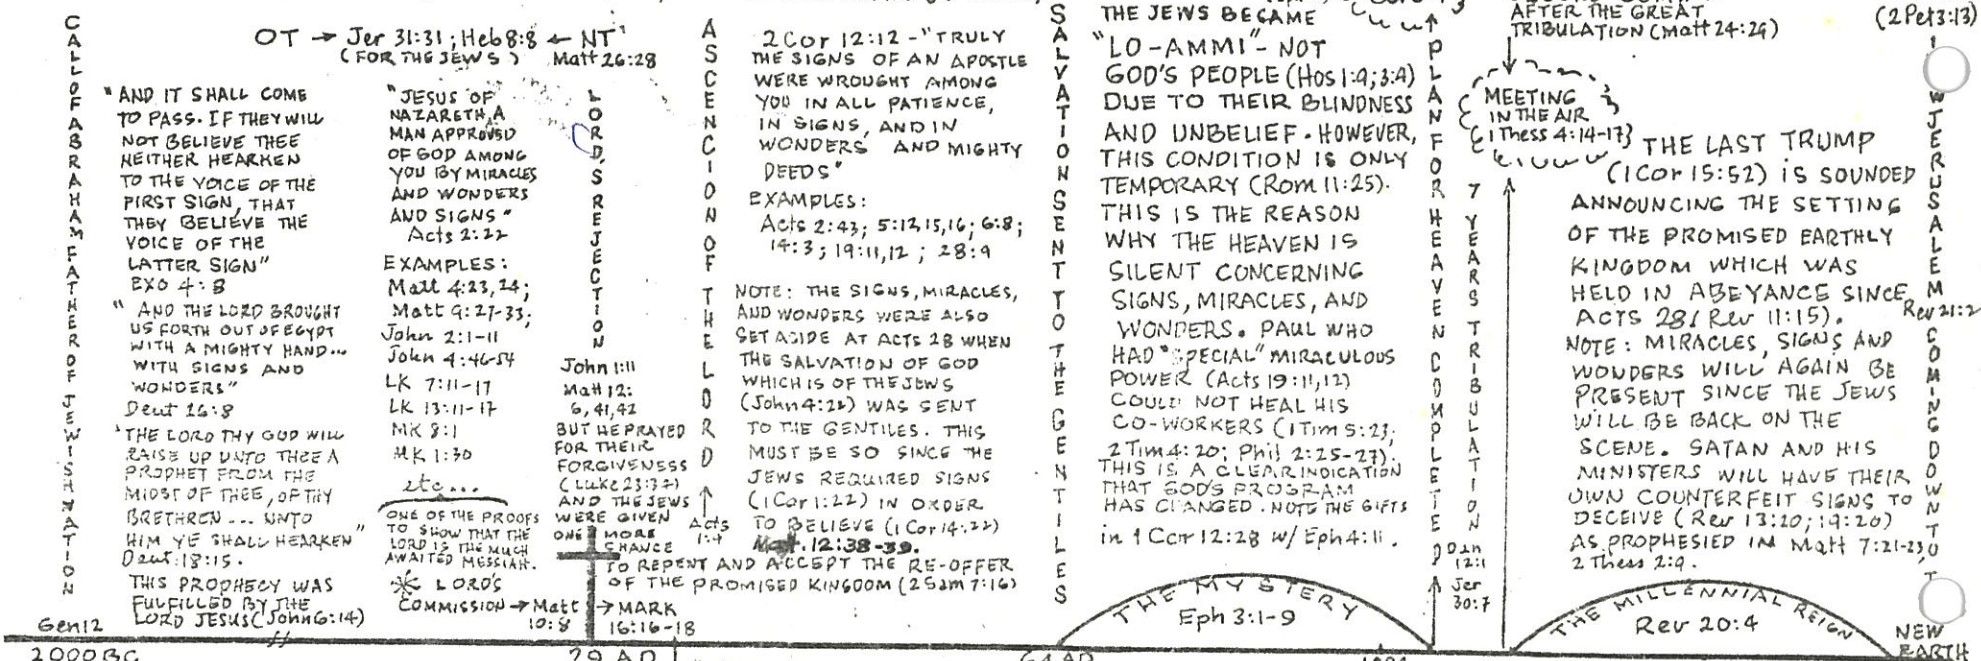 CALL OF ABRAHAM FATHER OF JEWISH NATION
Gen12
2000BC
OT → Jer 31:31; Heb 8:8 ← NT
(FOR THE JEWS) Matt 26:28
"AND IT SHALL COME
TO PASS. IF THEY WILL
NOT BELIEVE THEE
NEITHER HEARKEN
TO THE VOICE OF THE
FIRST SIGN, THAT
THEY BELIEVE THE
VOICE OF THE
LATTER SIGN"
EXO 4:8
"AND THE LORD BROUGHT
US FORTH OUT OF EGYPT
WITH A MIGHTY HAND...
WITH SIGNS AND
WONDERS"
Deut 26:8
"THE LORD THY GOD WILL
RAISE UP UNTO THEE A
PROPHET FROM THE
MIDST OF THEE, OF THY
BRETHREN... UNTO
HIM YE SHALL HEARKEN"
Deut 18:15.
THIS PROPHECY WAS
FULFILLED BY THE
LORD JESUS (John 6:14)
"JESUS OF
NAZARETH, A
MAN APPROVED
OF GOD AMONG
YOU BY MIRACLES
AND WONDERS
AND SIGNS"
Acts 2:22
EXAMPLES:
Matt 4:23,24;
Matt 9:27-33;
John 2:1-11
John 4:46-54
LK 7:11-17
LK 13:11-17
MK 8:1
MK 1:30
etc...
ONE OF THE PROOFS
TO SHOW THAT THE
LORD IS THE MUCH
AWAITED MESSIAH.
LORD'S
COMMISSION → Matt
10:8
→ MARK
16:16-18
LORD'S REJECTION
John 1:11
Matt 12:
6,41,42
BUT HE PRAYED
FOR THEIR
FORGIVENESS
(Luke 23:34)
AND THE JEWS
WERE GIVEN
ONE MORE
CHANCE
TO REPENT AND ACCEPT THE RE-OFFER
OF THE PROMISED KINGDOM (2 Sam 7:16)
29 AD
ASCENCION OF THE LORD
Acts
1:9
2 Cor 12:12 - "TRULY
THE SIGNS OF AN APOSTLE
WERE WROUGHT AMONG
YOU IN ALL PATIENCE,
IN SIGNS, AND IN
WONDERS AND MIGHTY
DEEDS"
EXAMPLES:
Acts 2:43; 5:12,15,16; 6:8;
14:3; 19:11,12; 28:9
NOTE: THE SIGNS, MIRACLES,
AND WONDERS WERE ALSO
SET ASIDE AT ACTS 28 WHEN
THE SALVATION OF GOD
WHICH IS OF THE JEWS
(John 4:22) WAS SENT
TO THE GENTILES. THIS
MUST BE SO SINCE THE
JEWS REQUIRED SIGNS
(1 Cor 1:22) IN ORDER
TO BELIEVE (1 Cor 14:22)
Mat. 12:38-39.
SALVATION SENT TO THE GENTILES
64 AD
THE JEWS BECAME
"LO-AMMI" - NOT
GOD'S PEOPLE (Hos 1:9; 3:4)
DUE TO THEIR BLINDNESS
AND UNBELIEF. HOWEVER,
THIS CONDITION IS ONLY
TEMPORARY (Rom 11:25).
THIS IS THE REASON
WHY THE HEAVEN IS
SILENT CONCERNING
SIGNS, MIRACLES, AND
WONDERS. PAUL WHO
HAD "SPECIAL" MIRACULOUS
POWER (Acts 19:11,12)
COULD NOT HEAL HIS
CO-WORKERS (1 Tim 5:23;
2 Tim 4:20; Phil 2:25-27).
THIS IS A CLEAR INDICATION
THAT GOD'S PROGRAM
HAS CHANGED. NOTE THE GIFTS
in 1 Cor 12:28 w/ Eph 4:11.
THE MYSTERY
Eph 3:1-9
PLAN FOR HEAVEN COMPLETED
7 YEARS TRIBULATION
Dan
12:1
Jer
30:7
AFTER THE GREAT
TRIBULATION (Matt 24:29)
MEETING
IN THE AIR
(1 Thess 4:14-17)
THE LAST TRUMP
(1 Cor 15:52) IS SOUNDED
ANNOUNCING THE SETTING
OF THE PROMISED EARTHLY
KINGDOM WHICH WAS
HELD IN ABEYANCE SINCE
ACTS 28 (Rev 11:15).
NOTE: MIRACLES, SIGNS AND
WONDERS WILL AGAIN BE
PRESENT SINCE THE JEWS
WILL BE BACK ON THE
SCENE. SATAN AND HIS
MINISTERS WILL HAVE THEIR
OWN COUNTERFEIT SIGNS TO
DECEIVE (Rev 13:20; 19:20)
AS PROPHESIED IN Matt 7:21-23,
2 Thess 2:9.
THE MILLENNIAL REIGN
Rev 20:4
(2 Pet 3:13)
JERUSALEM COMING DOWN TO
Rev 21:2
NEW
EARTH